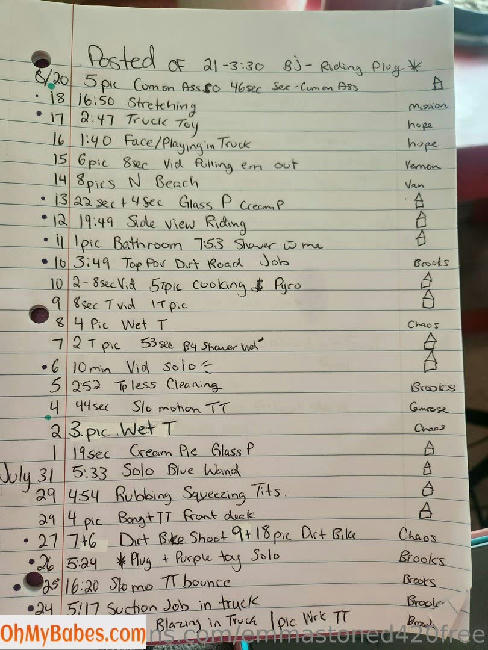 Posted OF 21-3:30 BJ- Riding Plug *
8/20 5 pic Cum on Ass 46sec Sec-Cum on Ass
18 16:50 Stretching mission
17 2:47 Truck Toy hope
16 1:40 Face/Playing in Truck hope
15 6pic 8sec Vid Pulling em out Vernon
14 8pics N Beach Van
13 22 sec + 4 sec Glass P CreamP
12 19:49 Side View Riding
11 1pic Bathroom 7:53 Shower w me
10 3:49 Top Pov Dirt Road Job Brooks
10 2-8sec Vid 5Tpic Cooking $ Pyro
9 8sec T vid 1T pic
8 4 Pic Wet T Chaos
7 2 T pic 53sec BJ Shower
6 10min Vid Solo
5 252 Topless Cleaning Brooks
4 44sec Slo motion TT
2 3.pic.Wet T Chaos
1 19sec Cream Pie Glass P
July 31 5:33 Solo Blue Wand
29 4:54 Rubbing Squeezing Tits.
29 4 pic Bong+TT Front deck
27 7+6 Dirt Bike Shoot 9+18pic Dirt Bike Chaos
26 5:24 *Plug + Purple toy Solo Brooks
25 16:20 Slo mo TT bounce Brooks
24 5:17 Suction Job in truck Brooks
Blazing in Truck 1pic Pink TT
OhMyBabes.com
ns.com/emmastoned420free